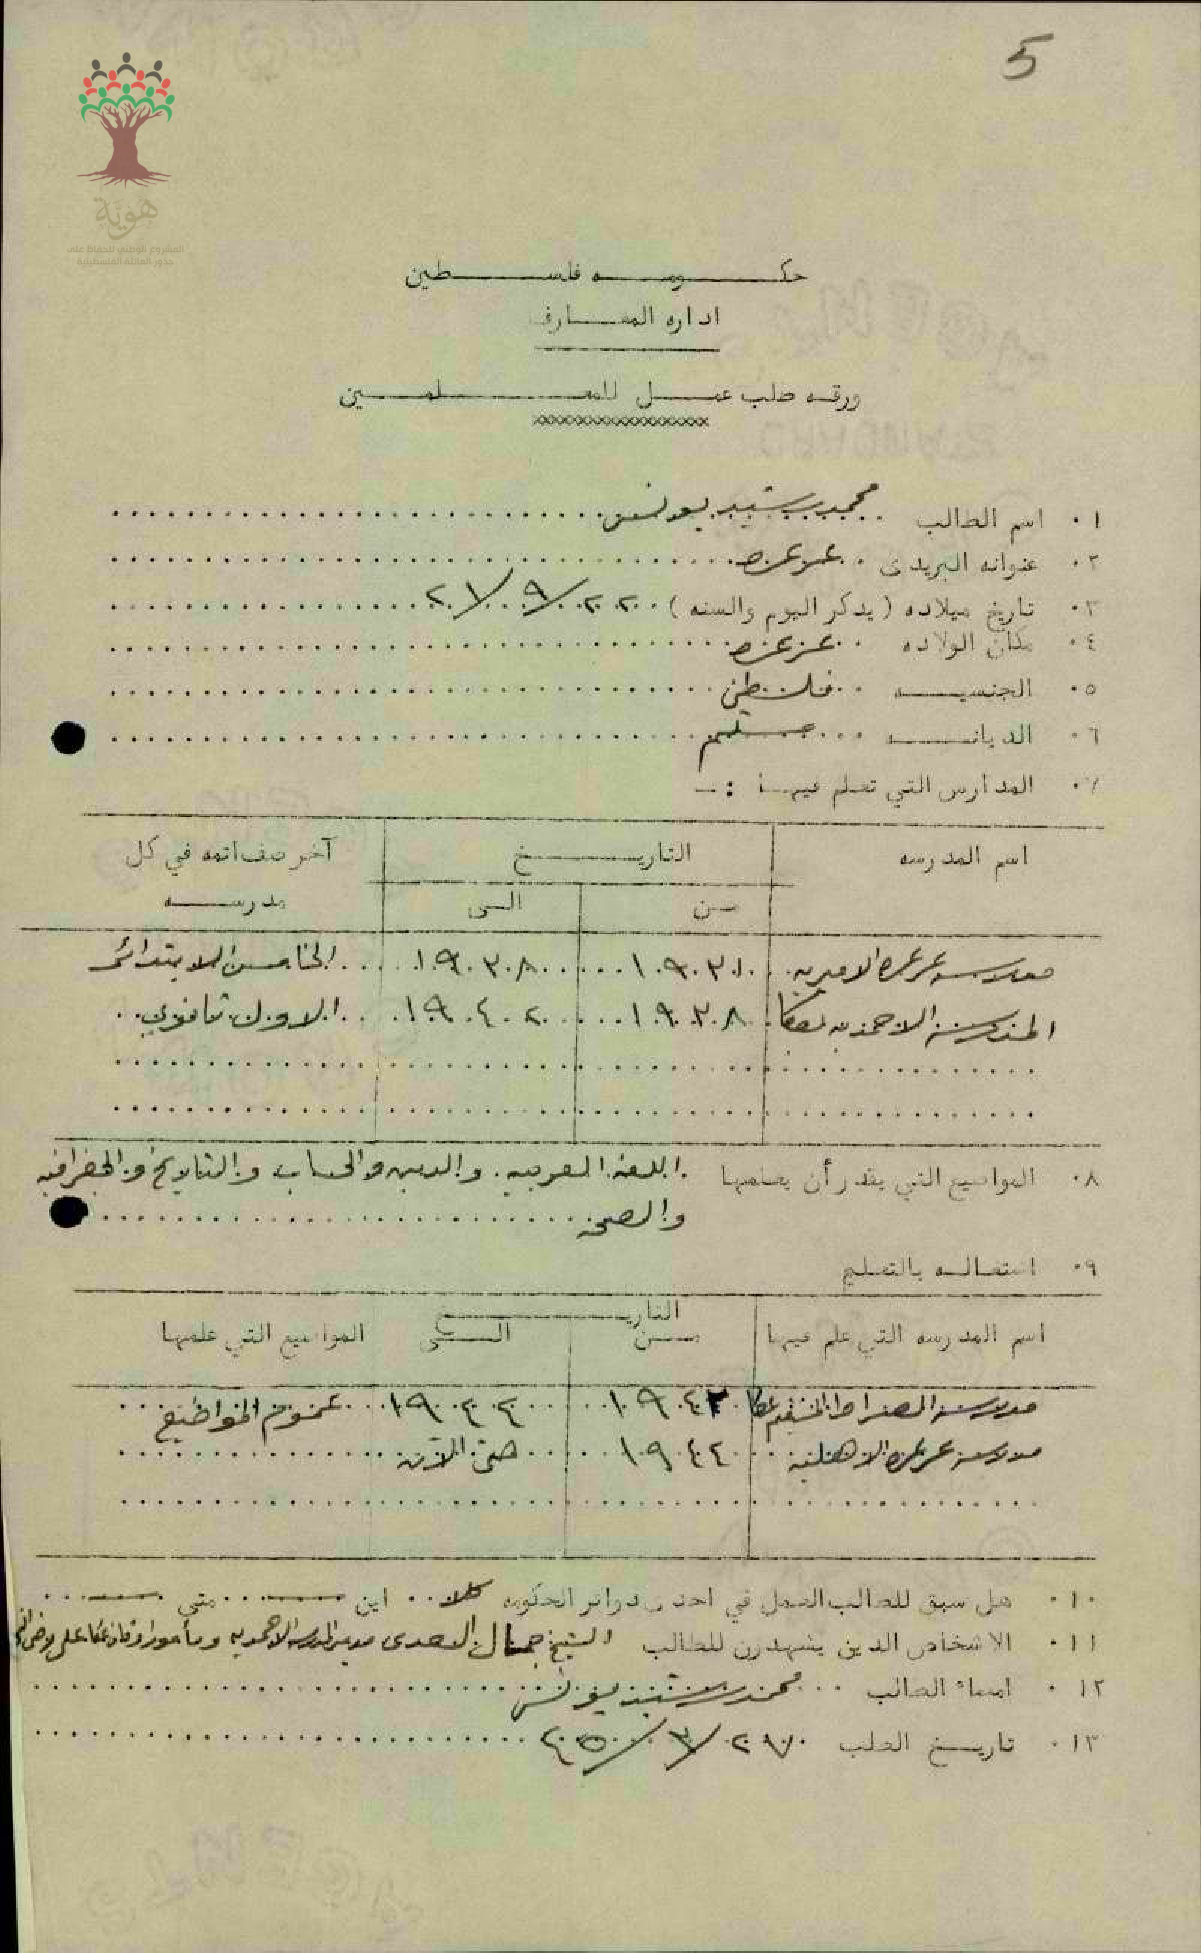 5
هوية
المشروع الوطني للحفاظ على
جذور العائلة الفلسطينية
حكومه فلسطين
اداره المعارف
ورقه طلب عمل للمعلمين
١٠ اسم الطالب محمد رشيد يونس
٢٠ عنوانه البريدى عرعره
٣٠ تاريخ ميلاده (يذكر اليوم والسنه) ٢٢/٩/٢١
٤٠ مكان الولاده عرعره
٥٠ الجنسيه فلسطيني
٦٠ الديانه مسلم
٧٠ المدارس التي تعلم فيها :-
اسم المدرسه التاريخ آخر صف اتمه في كل مدرسه
من الى
مدرسة عرعره الاميريه ١٩٣١ ١٩٣٨ الخامس الابتدائي
المدرسة الاحمديه بعكا ١٩٣٨ ١٩٤٢ الاول ثانوي
٨٠ المواضيع التي يقدر أن يعلمها اللغة العربيه والدين والحساب والتاريخ والجغرافيه
والصحه
٩٠ اشتغاله بالتعليم
اسم المدرسه التي علم فيها التاريخ المواضيع التي علمها
من الى
مدرسة عكا ١٩٤٣ ١٩٤٤ عموم المواضيع
مدرسة عرعره الاهليه ١٩٤٤ حتى الآن
١٠٠ هل سبق للطالب العمل في احدى دوائر الحكومه كلا اين — متى —
١١٠ الاشخاص الذين يشهدون للطالب الشيخ جمال السعدى مدير المدرسة الاحمديه ومأمور اوقاف عكا
١٢٠ امضاء الطالب محمد رشيد يونس
١٣٠ تاريخ الطلب ٢٧/٣/٤٥